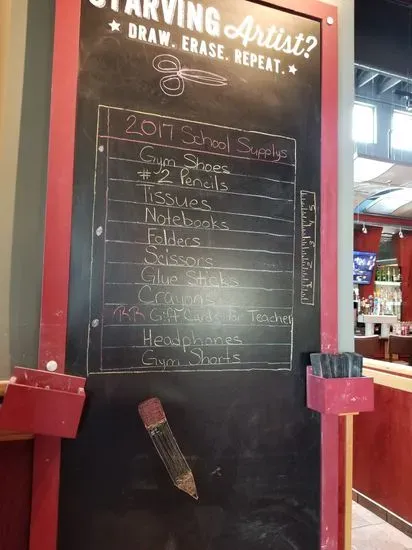 STARVING Artist?
★ DRAW. ERASE. REPEAT. ★
2017 School Supplys
Gym Shoes
#2 Pencils
Tissues
Notebooks
Folders
Scissors
Glue Sticks
Crayons
RR Gift Cards for Teacher
Headphones
Gym Shorts
5
4
3
2
1